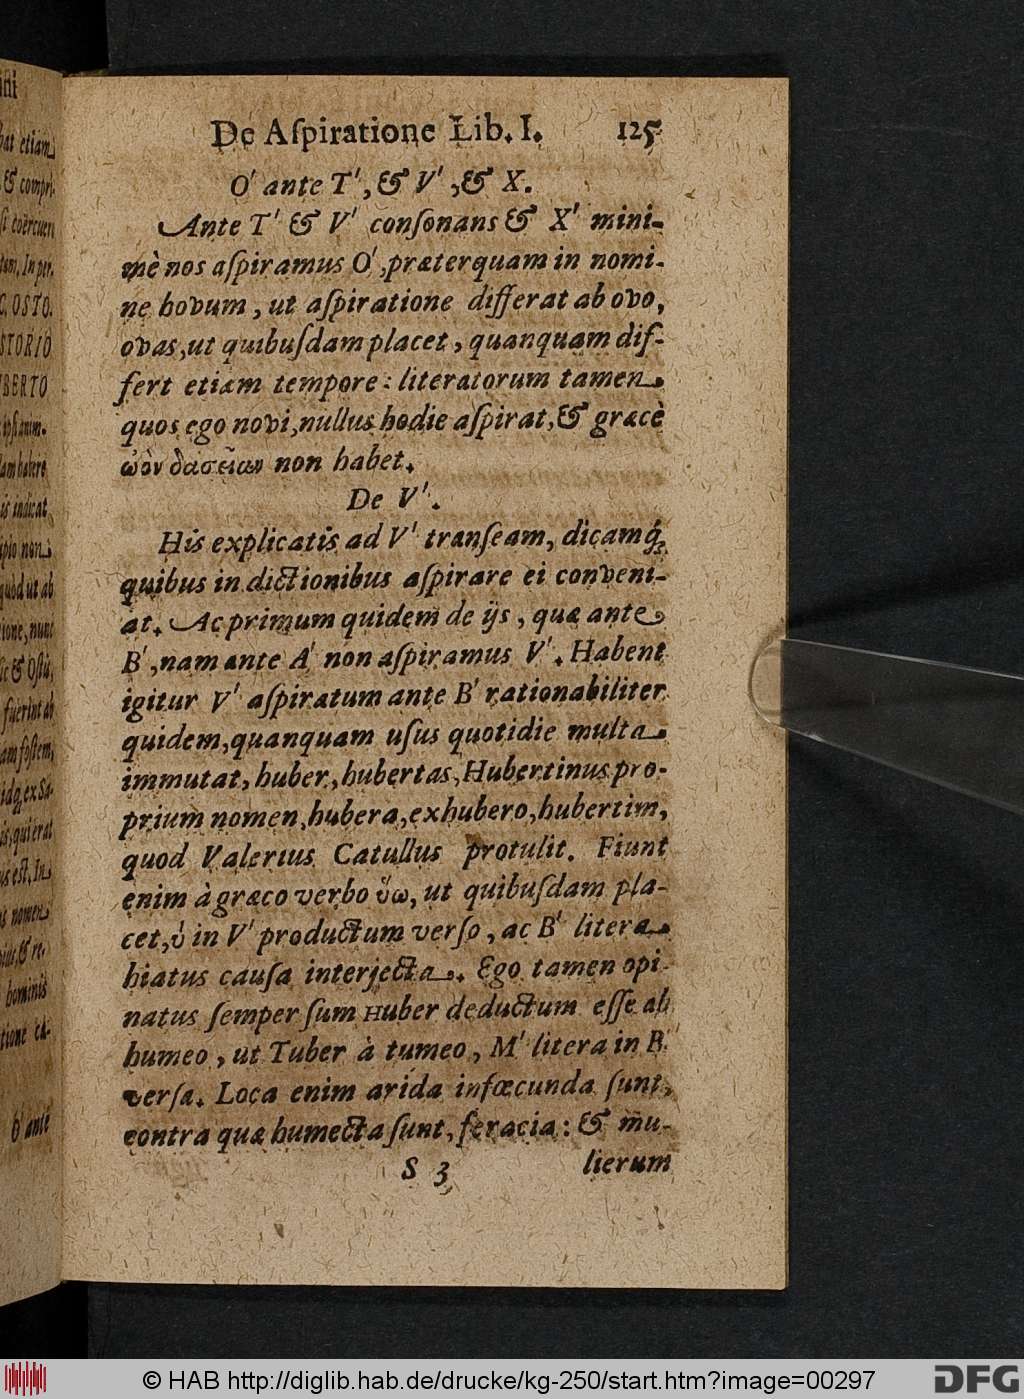 De Aſpiratione Lib. I. 125
O' ante T', & V', & X.
Ante T' & V' conſonans & X' mini-
mè nos aſpiramus O', præterquam in nomi-
ne hovum, ut aſpiratione differat ab ovo,
ovas, ut quibuſdam placet, quanquam dif-
fert etiam tempore: literatorum tamen
quos ego novi, nullus hodie aſpirat, & græcè
ὠὸν δασεῖαν non habet.
De V'.
His explicatis ad V' tranſeam, dicamq́;
quibus in dictionibus aſpirare ei conveni-
at. Ac primum quidem de ijs, quæ ante
B', nam ante A' non aſpiramus V'. Habent
igitur V' aſpiratum ante B' rationabiliter
quidem, quanquam uſus quotidie multa
immutat, huber, hubertas, Hubertinus pro-
prium nomen, hubera, exhubero, hubertim,
quod Valerius Catullus protulit. Fiunt
enim à græco verbo ὕω, ut quibuſdam pla-
cet, ὑ in V' productum verſo, ac B' litera
hiatus cauſa interjecta. Ego tamen opi-
natus ſemper ſum Huber deductum eſſe ab
humeo, ut Tuber à tumeo, M' litera in B'
verſa. Loca enim arida infœcunda ſunt,
contra quæ humecta ſunt, feracia: & mu-
S 3 lierum
bat etiam
& compri-
ſi coërcuen
C. OSTO.
STORIO
IBERTO
ipſi anim-
lam habere
is indicat
quod ut ab
ione, nunc
fuerint ab
am foſtem,
idq; ex Sa-
is, qui erat
us eſt. In
us nomen
hominis
O' ante
© HAB http://diglib.hab.de/drucke/kg-250/start.htm?image=00297
DFG